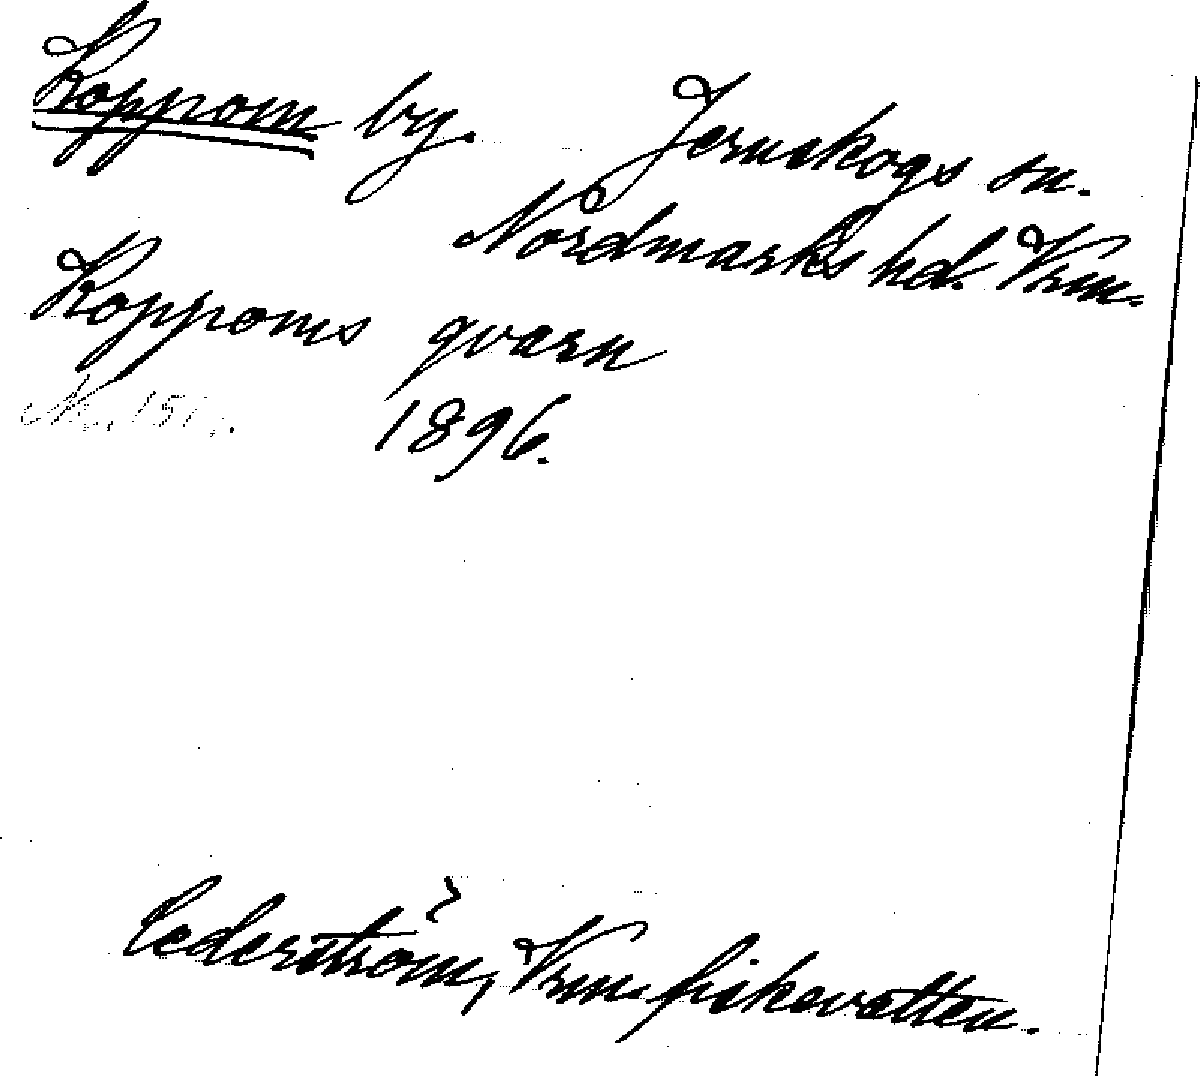 Koppom by. Jernskogs sn.
Nordmarks hd. Vrm.
Koppoms qvarn
1896.
Cederström, Vrm. fiskevatten.